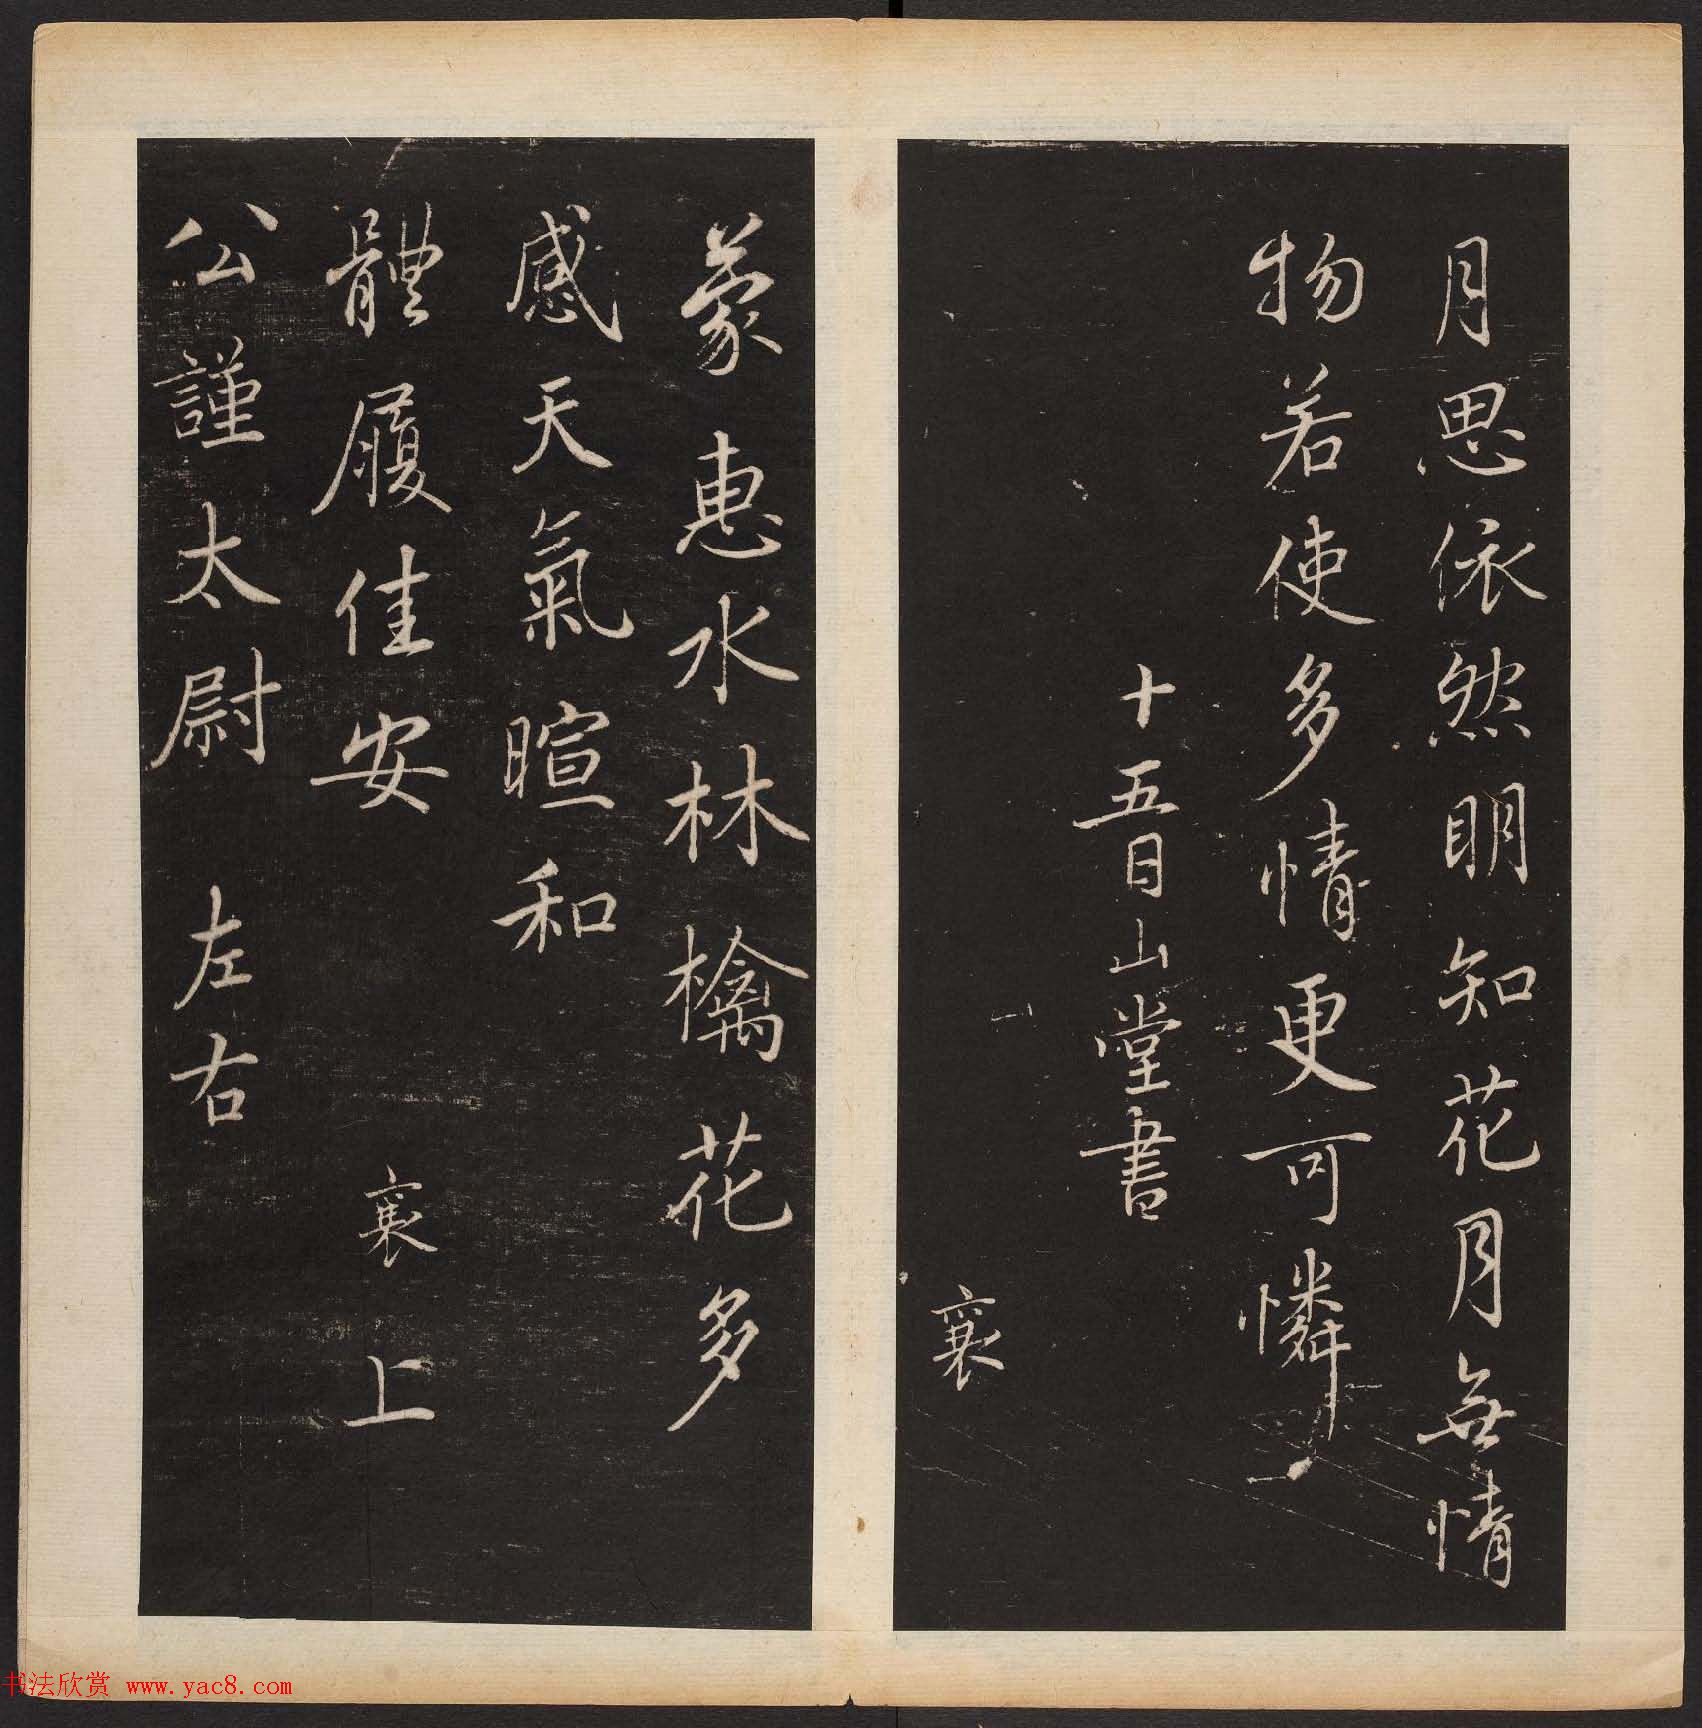 月思依然明知花月無情
物若使多情更可憐
十五日山堂書
襄
蒙惠水林檎花多
感天氣暄和
體履佳安 襄上
公謹太尉 左右
书法欣赏 www.yac8.com